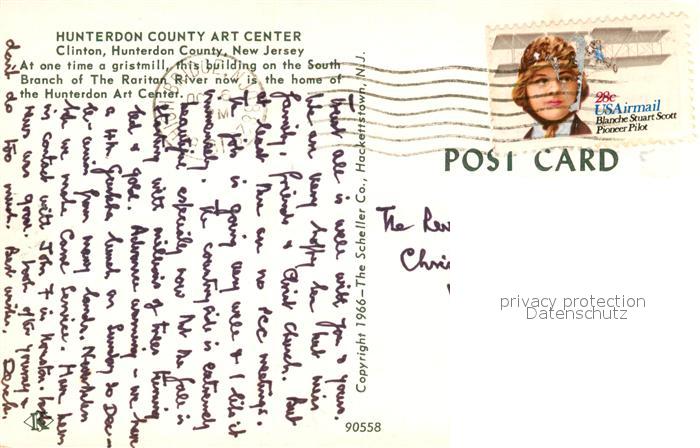 HUNTERDON COUNTY ART CENTER
Clinton, Hunterdon County, New Jersey
At one time a gristmill, this building on the South
Branch of The Raritan River now is the home of
the Hunterdon Art Center.
28c
USAirmail
Blanche Stuart Scott
Pioneer Pilot
POST CARD
Copyright 1966—The Scheller Co., Hackettstown, N.J.
90558
The Rev
Chris
privacy protection
Datenschutz
Trust all is well with you & yours.
We are very happy here but miss
family, friends & Christ Church. But
at least there are no PCC meetings.
The job is going very well & I like it
immensely. The countryside is extremely
beautiful especially now that the fall is
starting with millions of trees turning
red & gold. Advance warning - we have
a 4th lunch on Sunday 30 Dec
from many lands.
we made Carol Service. Have been
in contact with John & in Houston.
news was good. Look after yourself &
don't do too much. Best wishes, Derek.